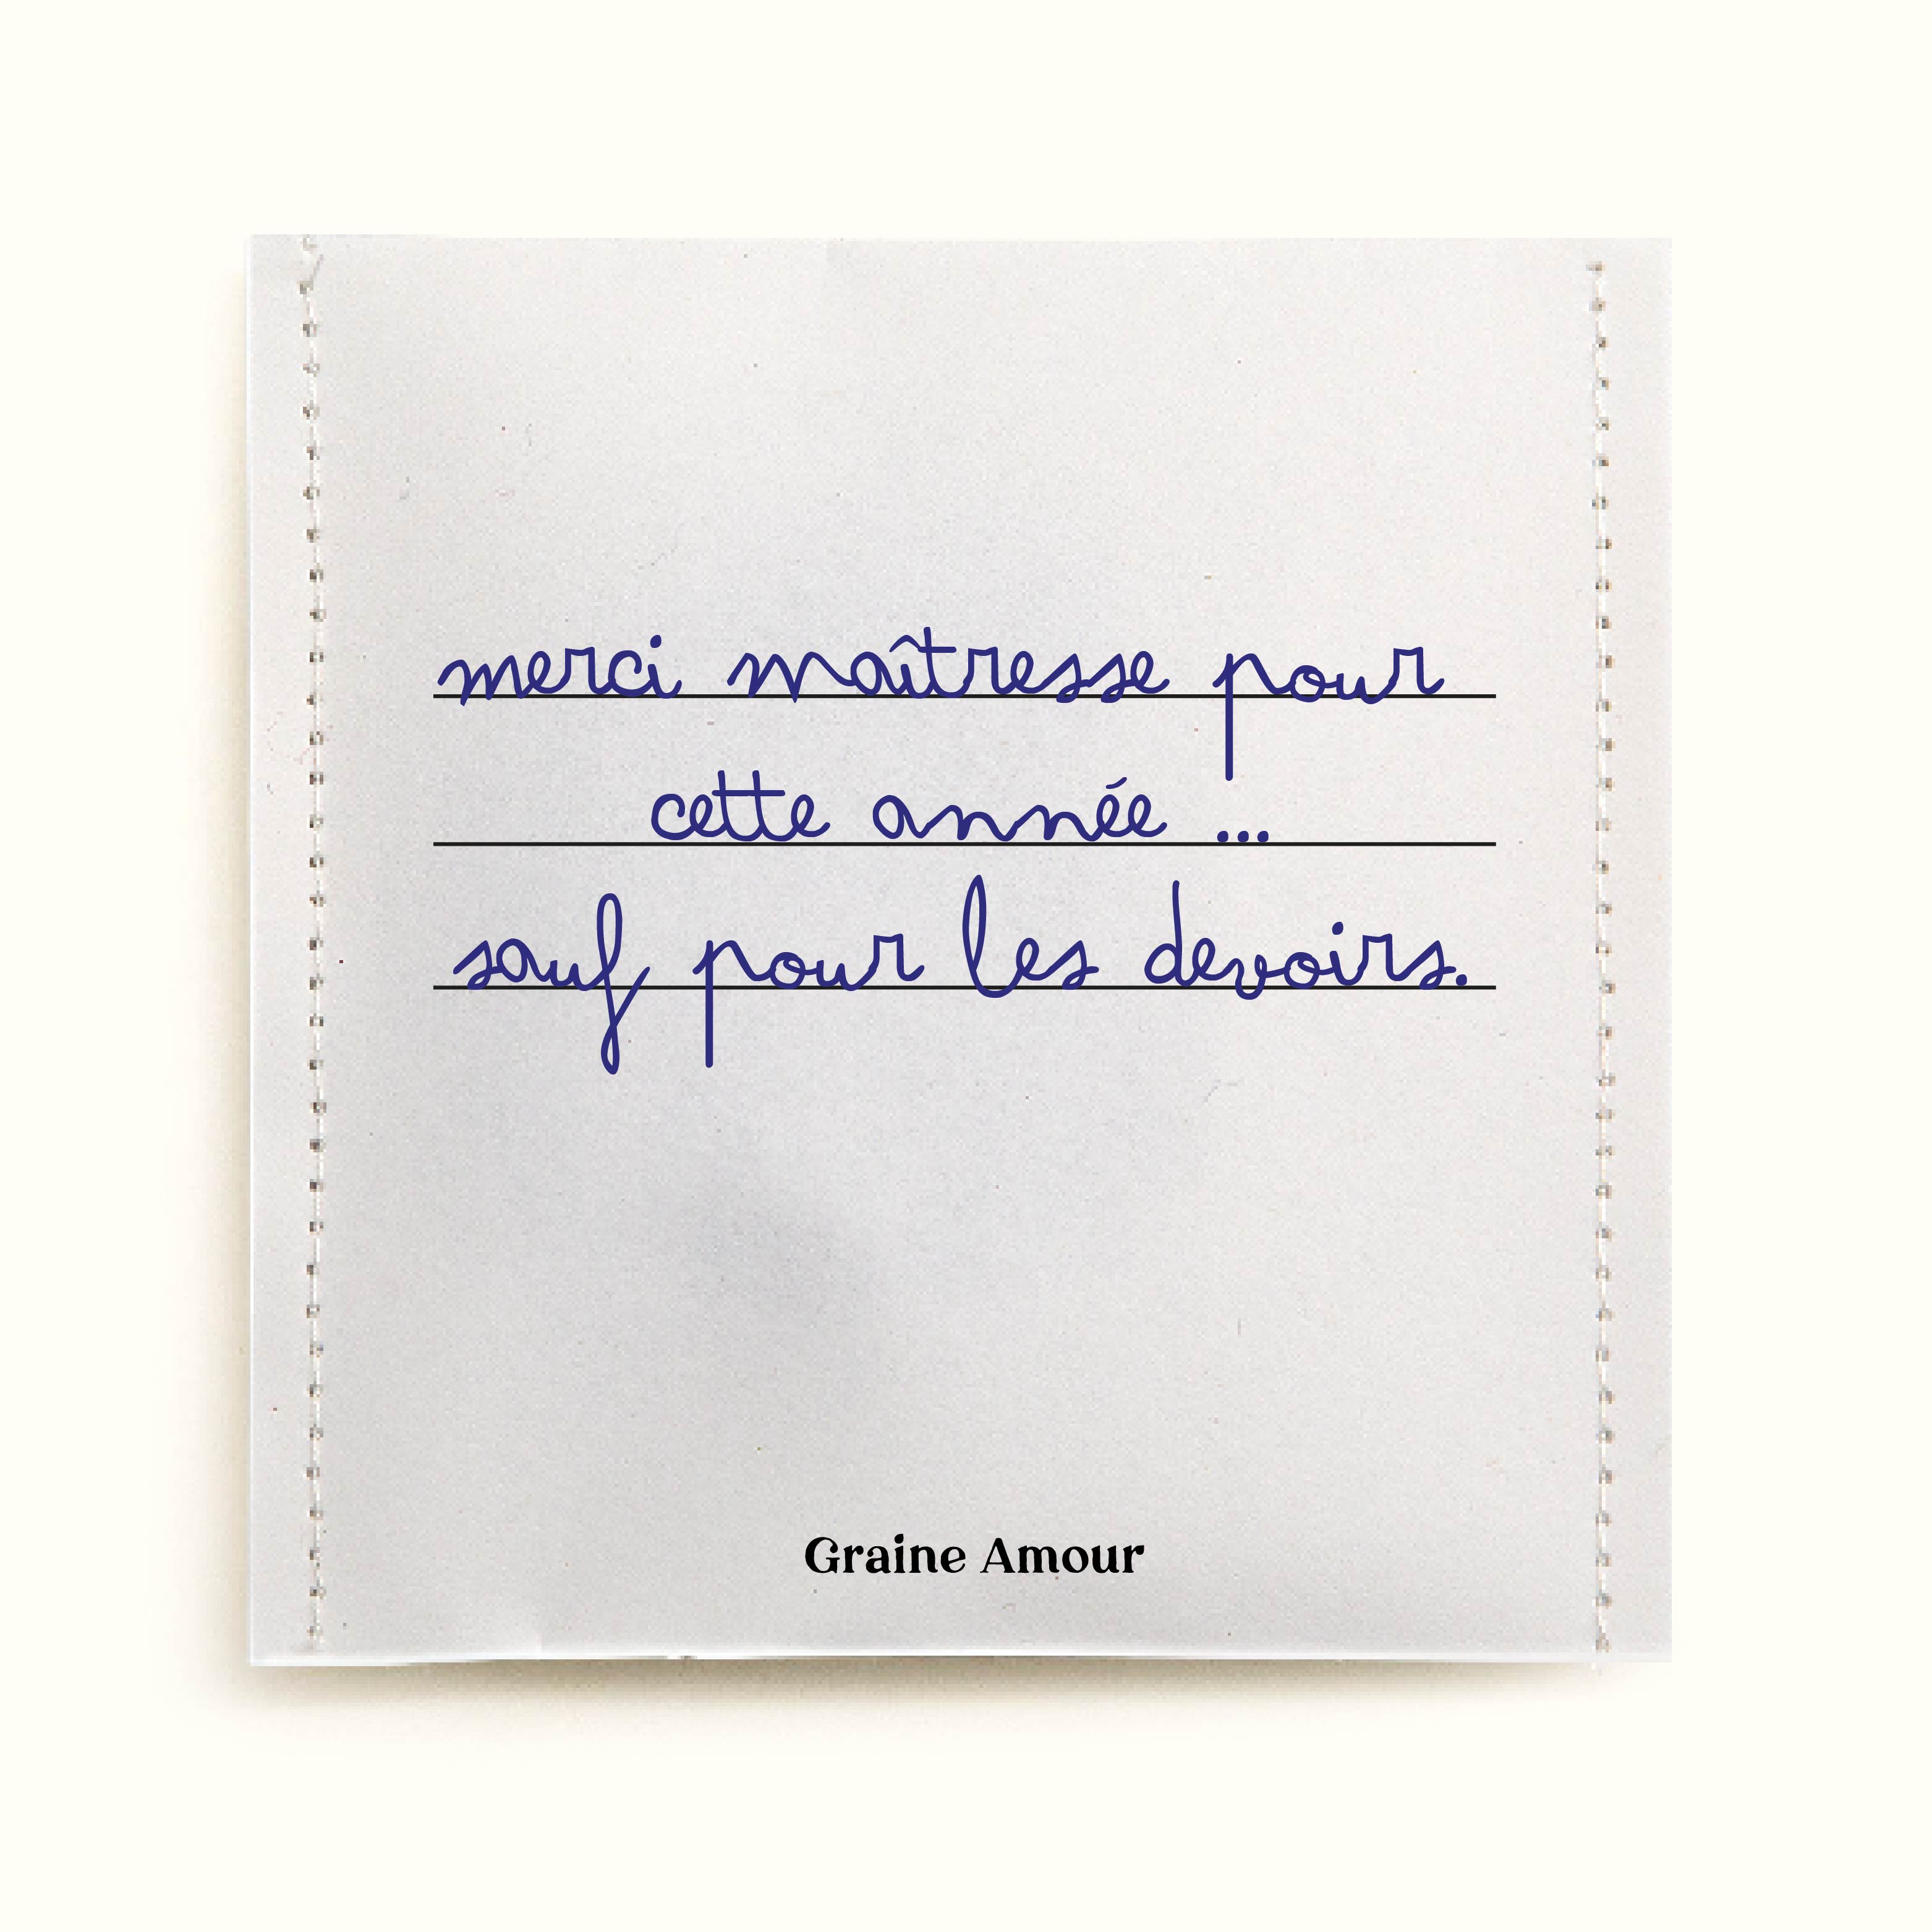 merci maîtresse pour
cette année ...
sauf pour les devoirs.
Graine Amour